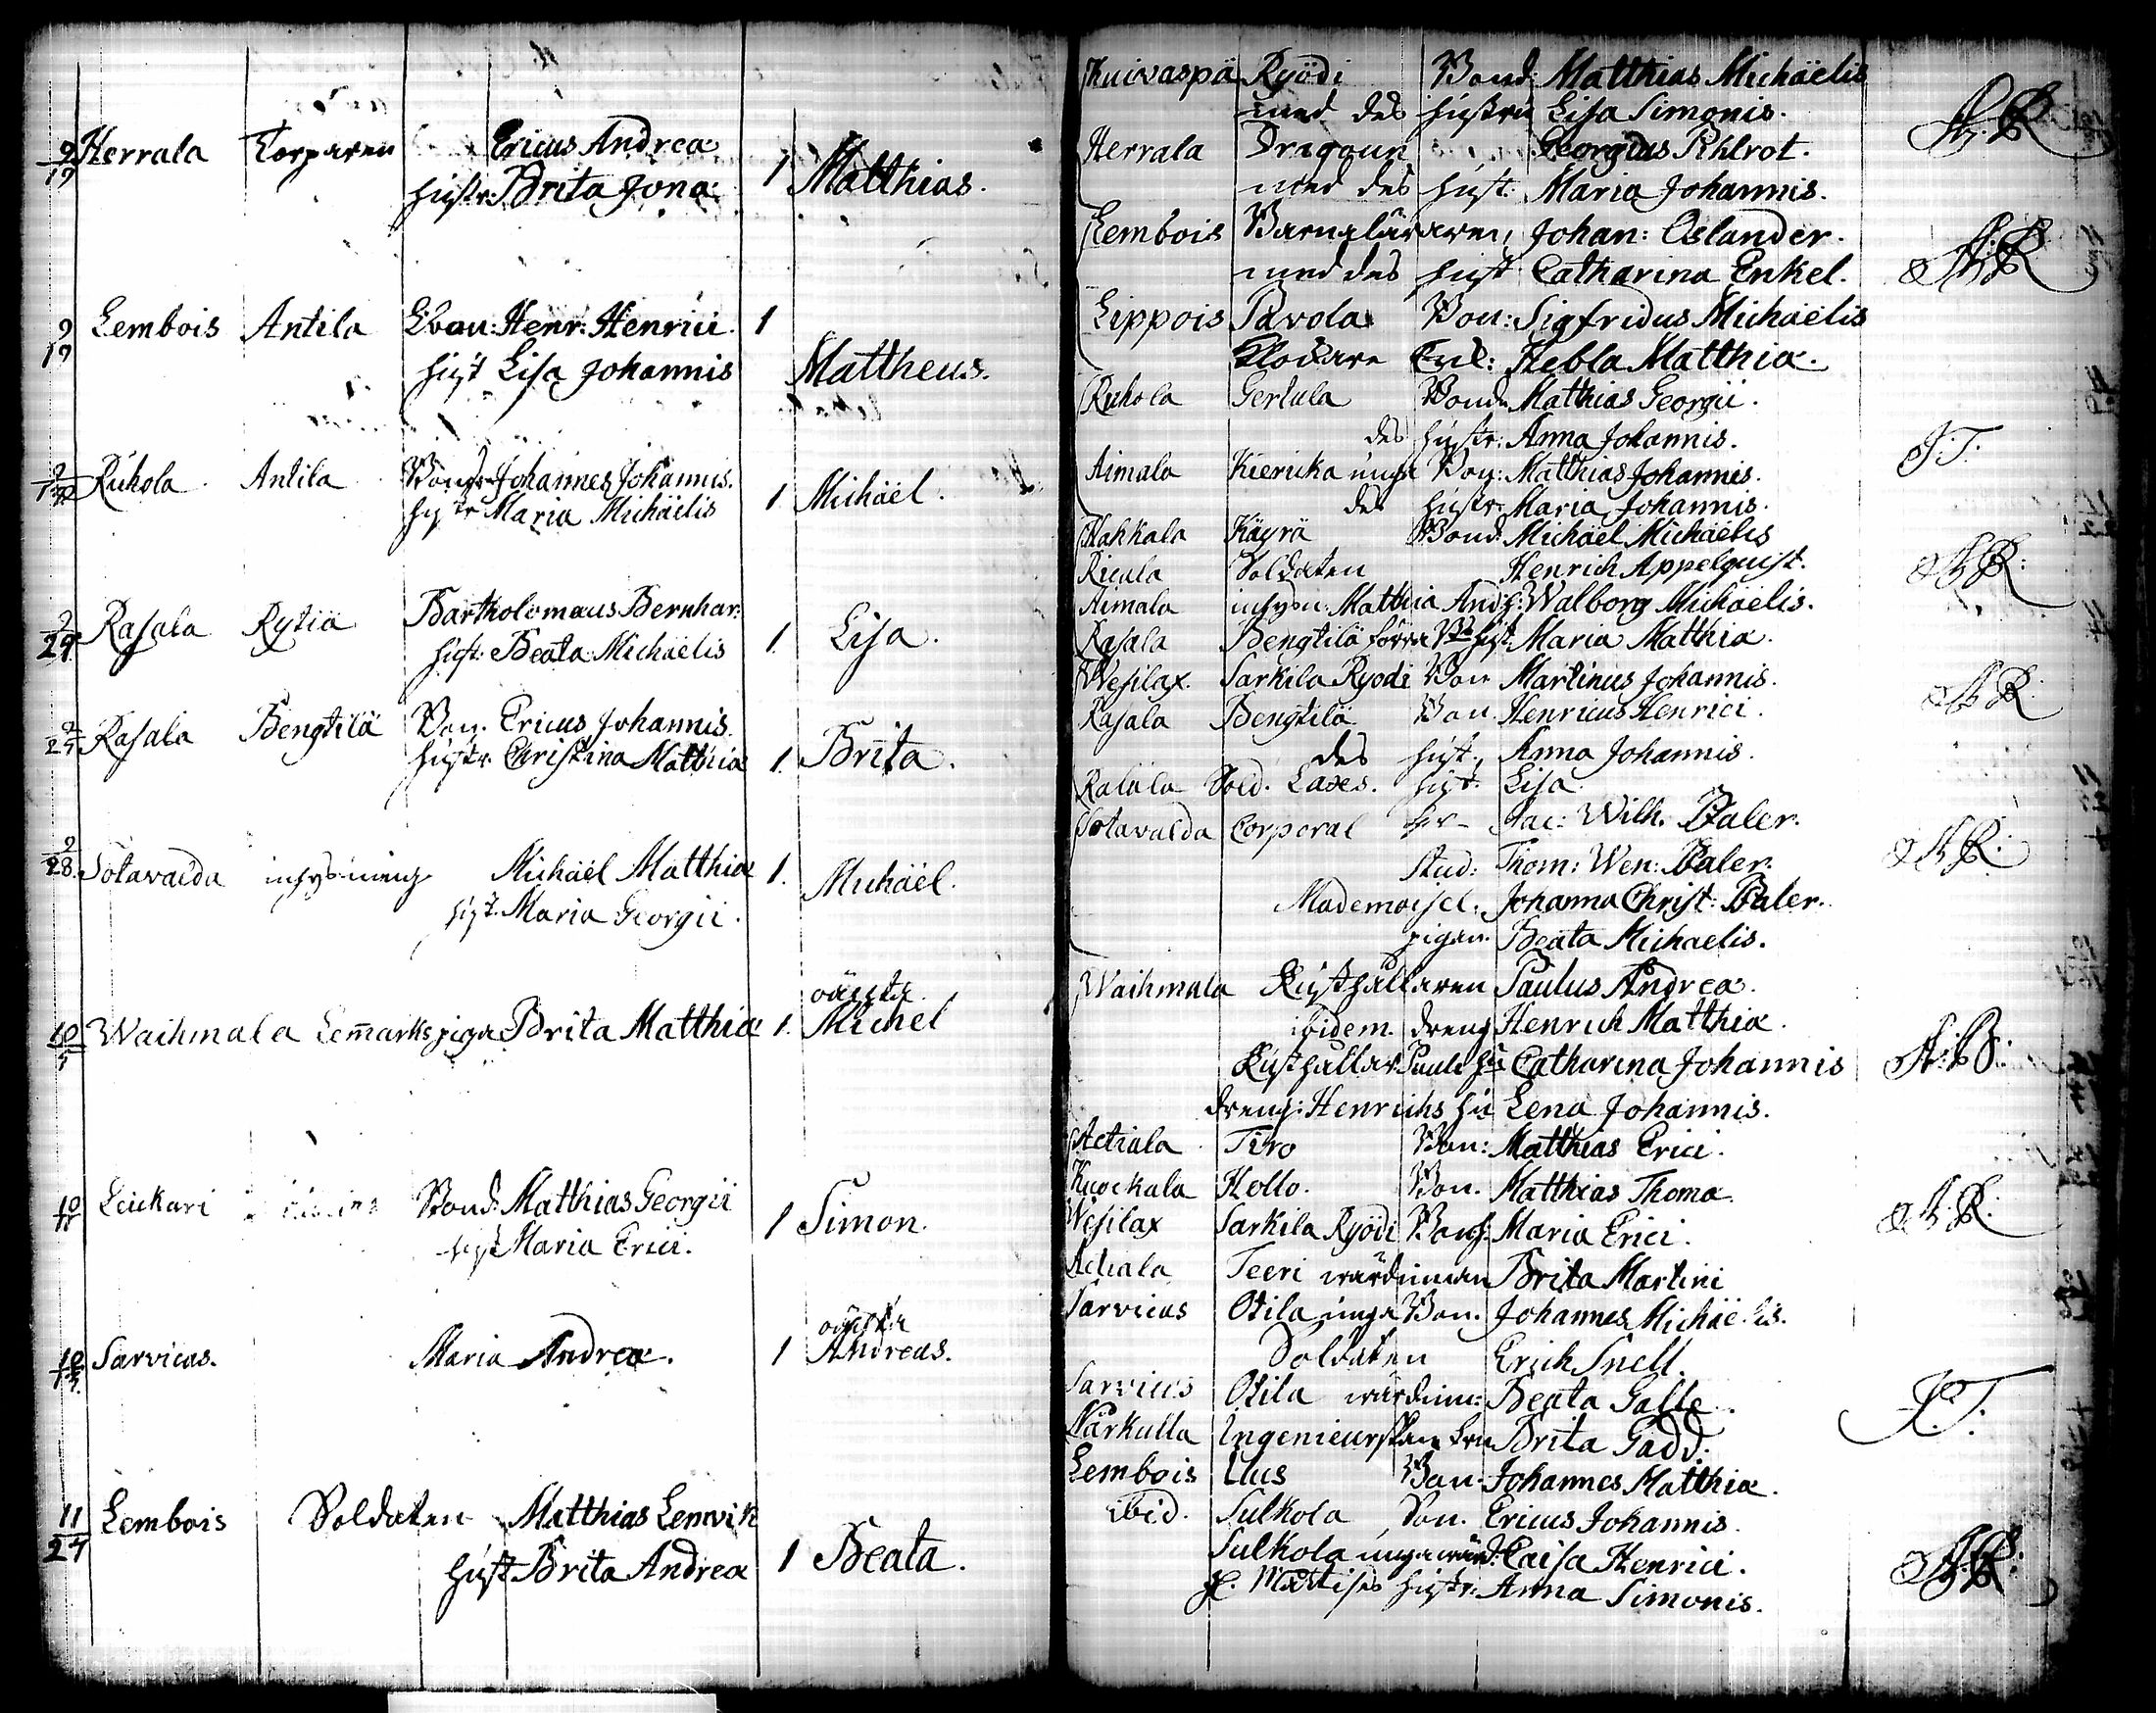 9/19 Herrala Torparen Ericus Andreæ
hustr: Brita Jonæ 1 Matthias.
9/19 Lembois Antila Bon: Henr: Henrici 1
hust Lisa Johannis Mattheus.
Ruhola Antila Bond Johannes Johannis.
hustr Maria Michaëlis 1 Michaël.
9/24 Rasala Rytiä Bartholomæus Bernhar:
hust: Beata Michaëlis 1. Lisa.
Rasala Bengtilä Bon. Ericus Johannis.
hustr Christina Matthiæ 1. Brita.
9/28. Sotavalda inhysning Michaël Matthiæ 1. Michaël.
hust. Maria Georgii.
oäckta
Waihmala Lemarks piga Brita Matthiæ 1. Michel
Leukari Bond: Matthias Georgii 1 Simon.
hust Maria Erici.
oäckta
Sarvicas. Maria Andreæ. 1 Andreas.
11/24 Lembois Soldaten Matthias Lemvik
hust Brita Andreæ 1 Beata.
Kuivaspä Ryödi Bond: Matthias Michaëlis
med des hustru Lisa Simonis.
Herrala Dragoun Georgius
med des hust: Maria Johannis.
Lembois Barnaläraren, Johan: Oslander.
med des hust Catharina Enkel.
Lippois Pavola Bon: Sigfridus Michaëlis
Klockare Enk: Hebla Matthiæ.
Ruhola Gertula Bond. Mathias Georgii.
des hustr: Anna Johannis.
Aimala Kiericka unga Bon: Matthias Johannis.
des hustr. Maria Johannis.
Hakkala Käyrä Bond: Michaël Michaëlis
Ricala Soldaten Henrich Appelquist.
Aimala inhysn: Matthiæ And: h: Walborg Michaëlis.
Rasala Bengtilä förra hust: Maria Matthiæ.
Wesilax. Sarkila Ryodi Bon Martinus Johannis.
Rasala Bengtilä Bon. Henricus Henrici.
des hust, Anna Johannis.
Rasala Sold. Laxes. hust: Lisa
Sotavalda Corporal her Jac: Wilh. Paler.
stud: Thom: Wen: Paler.
Mademoisel. Johanna Christ: Paler.
pigan. Beata Michaelis.
Waihmala Rusthållaren Paulus Andreæ.
ibidem. dreng Henrich Matthiæ.
Rusthållar Pauli hu Catharina Johannis
dreng: Henrichs hu Lena Johannis.
Achiala Tiro Bon: Matthias Erici.
Kuockala Hollo. Bon. Matthias Thomæ.
Wesilax Sarkila Ryödi Bon h. Maria Erici.
Achala Teeri wärdinnan Brita Martini
Sarvicas Otila unga Bon. Johannes Michaëlis.
Soldaten Erich Snell.
Sarvicas Otila wärdinn: Beata Galle.
Närkulla Ingenieurskan fru Brita Gadd.
Lembois Uus Bon. Johannes Matthiæ.
ibid. Sulkola Bon. Ericus Johannis.
Sulkola unga wärd: Caisa Henrici.
hustr. Anna Simonis.